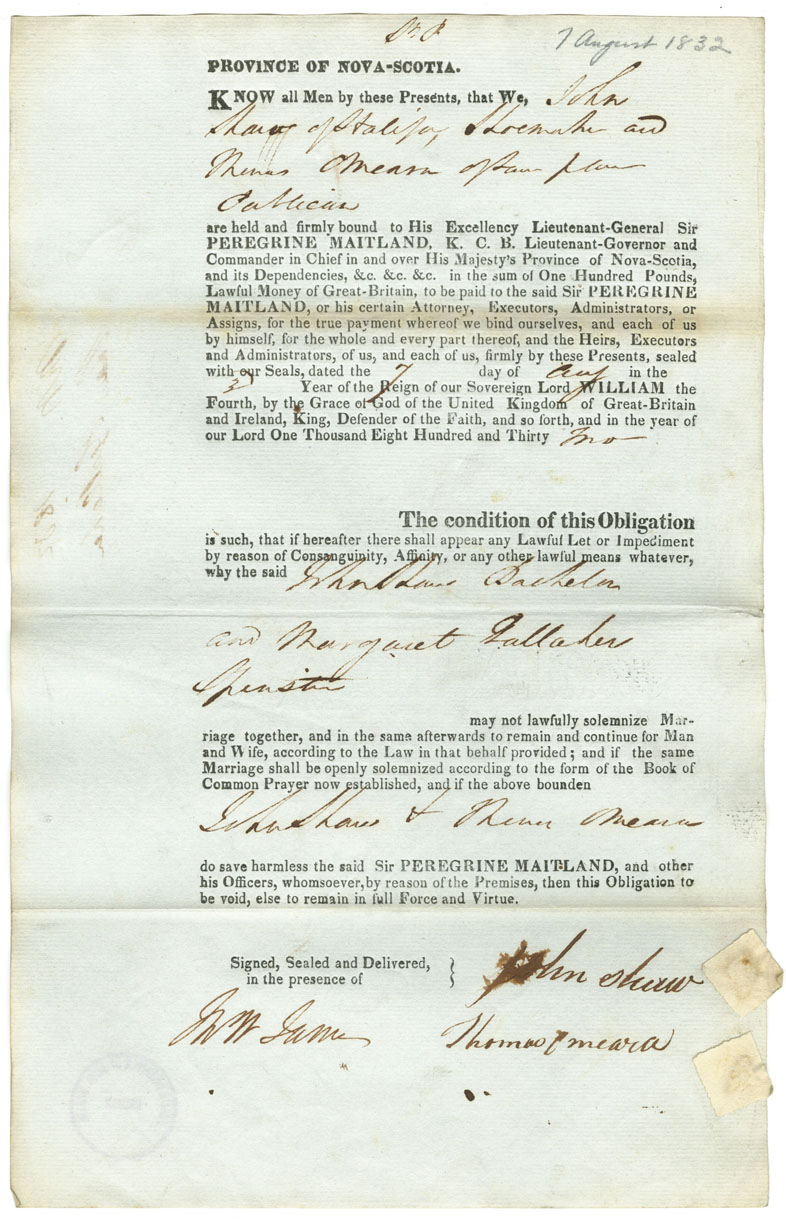 7 August 1832
PROVINCE OF NOVA-SCOTIA.
KNOW all Men by these Presents, that We, John
Shaw of Halifax, Shoemaker and
Thomas OMeara of same place
Publican
are held and firmly bound to His Excellency Lieutenant-General Sir
PEREGRINE MAITLAND, K. C. B. Lieutenant-Governor and
Commander in Chief in and over His Majesty's Province of Nova-Scotia,
and its Dependencies, &c. &c. &c. in the sum of One Hundred Pounds,
Lawful Money of Great-Britain, to be paid to the said Sir PEREGRINE
MAITLAND, or his certain Attorney, Executors, Administrators, or
Assigns, for the true payment whereof we bind ourselves, and each of us
by himself, for the whole and every part thereof, and the Heirs, Executors
and Administrators, of us, and each of us, firmly by these Presents, sealed
with our Seals, dated the 7 day of Aug in the
3d Year of the Reign of our Sovereign Lord WILLIAM the
Fourth, by the Grace of God of the United Kingdom of Great-Britain
and Ireland, King, Defender of the Faith, and so forth, and in the year of
our Lord One Thousand Eight Hundred and Thirty two
The condition of this Obligation
is such, that if hereafter there shall appear any Lawful Let or Impediment
by reason of Consanguinity, Affinity, or any other lawful means whatever,
why the said John Shaw Bachelor
and Margaret Gallaher
Spinster
may not lawfully solemnize Mar-
riage together, and in the same afterwards to remain and continue for Man
and Wife, according to the Law in that behalf provided; and if the same
Marriage shall be openly solemnized according to the form of the Book of
Common Prayer now established, and if the above bounden
John Shaw & Thomas OMeara
do save harmless the said Sir PEREGRINE MAITLAND, and other
his Officers, whomsoever, by reason of the Premises, then this Obligation to
be void, else to remain in full Force and Virtue.
Signed, Sealed and Delivered,
in the presence of
John Shaw
Thomas Omeara